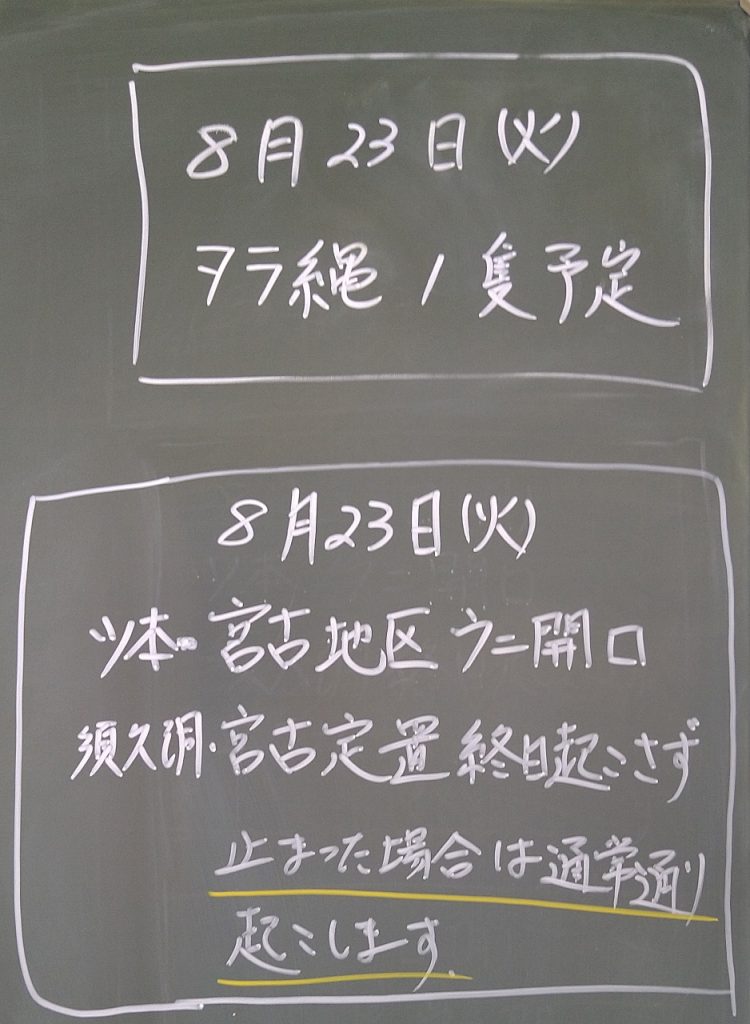 8月23日(火)
タラ縄 1隻予定
8月23日(火)
ツ本・宮古地区 ウニ開口
須久洞・宮古定置 終日起こさず
止まった場合は通常通り
起こします.